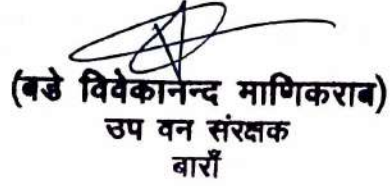 (बडे विवेकानन्द माणिकराब)
उप वन संरक्षक
बाराँ